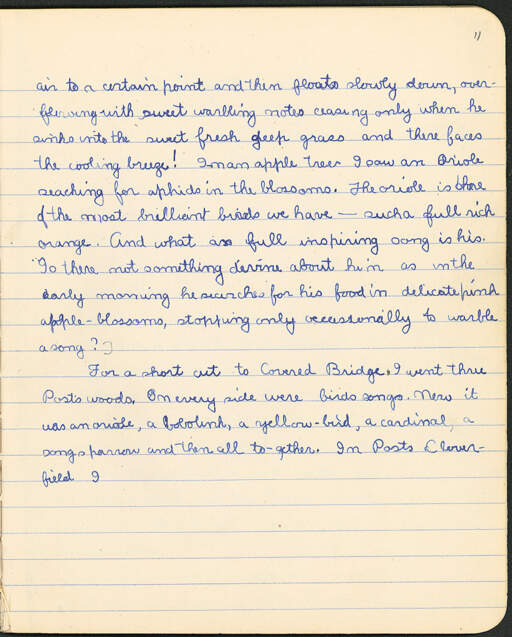 11
air to a certain point and then floats slowly down, over-
flowing with sweet warbling notes ceasing only when he
sinks into the sweet fresh deep grass and there faces
the cooling breeze! In an apple tree I saw an Oriole
seaching for aphids in the blossoms. The oriole is one
of the most brilliant birds we have — such a full rich
orange. And what a full inspiring song is his.
Is there not something devine about him as in the
early morning he searches for his food in delicate pink
apple-blossoms, stopping only occassionally to warble
a song?
For a short cut to Covered Bridge, I went thru
Posts woods. On every side were birds songs. Now it
was an oriole, a bobolink, a yellow-bird, a cardinal, a
song sparrow and then all to-gether. In Posts Clover-
field I